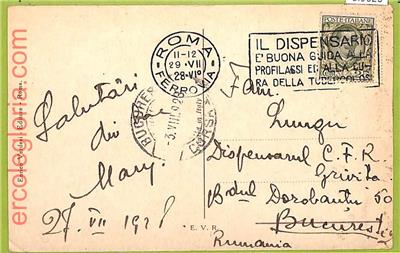 ROMA
FERROVIA
11-12
29·VII
28·VIº
IL DISPENSARIO
E' BUONA GUIDA ALLA
PROFILASSI ED ALLA CU-
RA DELLA TUBERCOLOSI
POSTE ITALIANE
Salutări
din
Mary.
27. VII 1928
Fam.
Lungu
Dispensarul C. F. R.
Grivita
B-dul Dorobanţu 50
Bucureşti
Rumania
3.VIII.92
E. V. R.
ercologloria.com